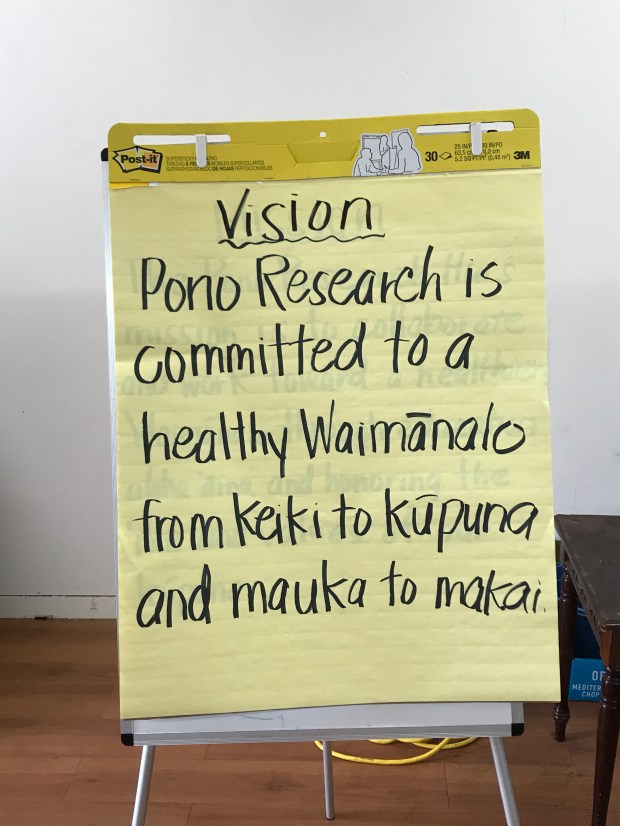 Post-it
30
25 IN
3M
Vision
Pono Research is
committed to a
healthy Waimānalo
from keiki to kūpuna
and mauka to makai.
MEDITER
CHOP